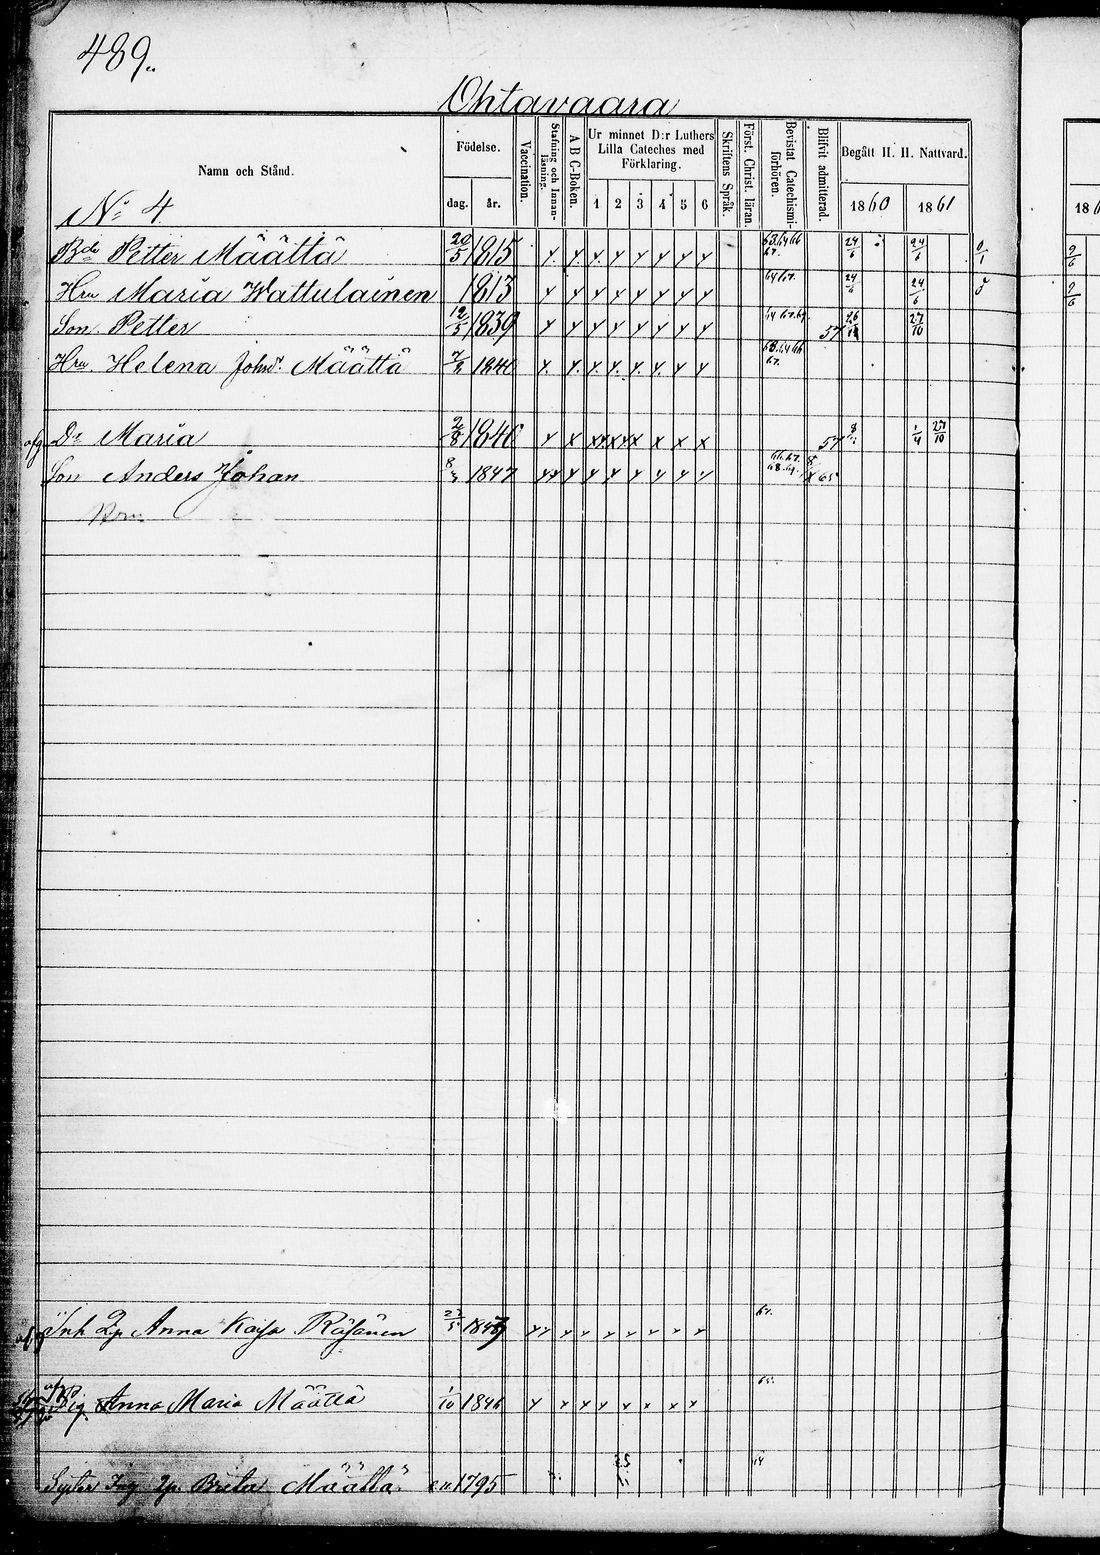 489.
Ohtavaara
Namn och Stånd.
Födelse.
dag. år.
Vaccination.
Stafning och Innanläsning.
A B C-Boken.
Ur minnet D:r Luthers Lilla Cateches med Förklaring.
1 2 3 4 5 6
Skriftens Språk.
Först. Christ. läran.
Bevistat Catechismiförhören.
Blifvit admitterad.
Begått H. H. Nattvard.
1860 1861
No 4
Bde Petter Määttä 20/5 1815 63.64 66 67. 24/6 24/6
Hru Maria Wattulainen 1813 64 67. 24/6 24/6
Son Petter 12/5 1839 64 67. 69. 57 27/10
Hru Helena Johsdr Määttä 1840 63.64 66 67.
afg Dr Maria 2/8 1840 57 1/4 27/10
Son Anders Johan 1847 66.67. 68.69. 65
Inh Anna Kaisa Räsänen 5 67.
Pig Anna Maria Määttä 1/10 1846 65.
Syster Brita Määttä 1795